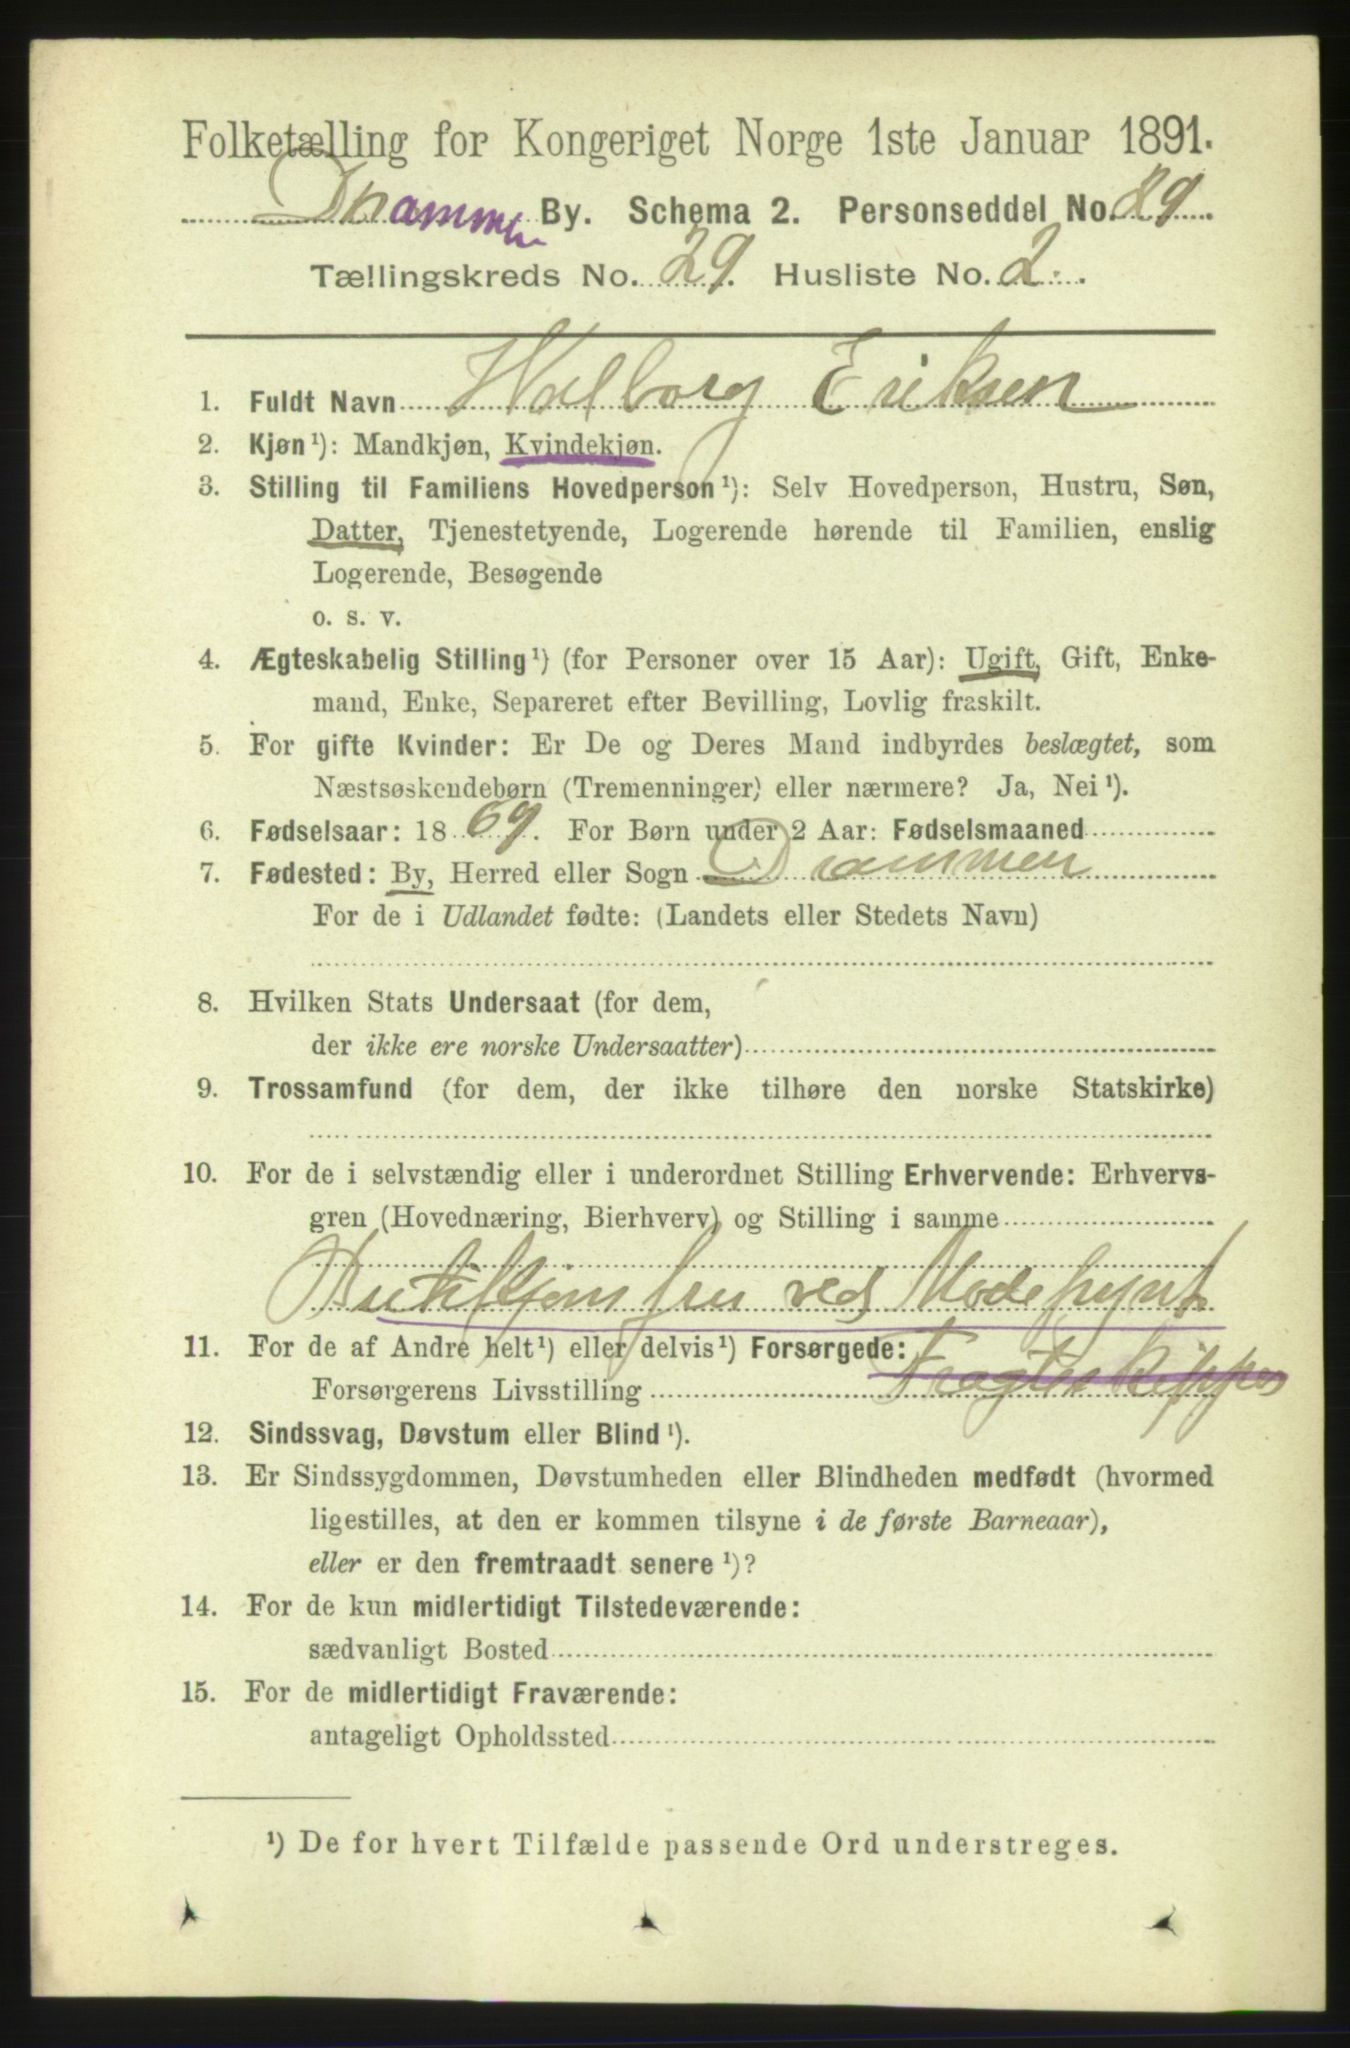 Folketælling for Kongeriget Norge 1ste Januar 1891.
Drammen By. Schema 2. Personseddel No. 89
Tællingskreds No. 29. Husliste No. 2.
1. Fuldt Navn Valborg Eriksen
2. Kjøn¹): Mandkjøn, Kvindekjøn.
3. Stilling til Familiens Hovedperson¹): Selv Hovedperson, Hustru, Søn,
Datter, Tjenestetyende, Logerende hørende til Familien, enslig
Logerende, Besøgende
o. s. v.
4. Ægteskabelig Stilling¹) (for Personer over 15 Aar): Ugift, Gift, Enke-
mand, Enke, Separeret efter Bevilling, Lovlig fraskilt.
5. For gifte Kvinder: Er De og Deres Mand indbyrdes beslægtet, som
Næstsøskendebørn (Tremenninger) eller nærmere? Ja, Nei¹).
6. Fødselsaar: 1869. For Børn under 2 Aar: Fødselsmaaned
7. Fødested: By, Herred eller Sogn Drammen
For de i Udlandet fødte: (Landets eller Stedets Navn)
8. Hvilken Stats Undersaat (for dem,
der ikke ere norske Undersaatter)
9. Trossamfund (for dem, der ikke tilhøre den norske Statskirke)
10. For de i selvstændig eller i underordnet Stilling Erhvervende: Erhvervs-
gren (Hovednæring, Bierhverv) og Stilling i samme
Butikjomfru ved Modepynt
11. For de af Andre helt¹) eller delvis¹) Forsørgede:
Forsørgerens Livsstilling Fragteskipper
12. Sindssvag, Døvstum eller Blind¹).
13. Er Sindssygdommen, Døvstumheden eller Blindheden medfødt (hvormed
ligestilles, at den er kommen tilsyne i de første Barneaar),
eller er den fremtraadt senere¹)?
14. For de kun midlertidigt Tilstedeværende:
sædvanligt Bosted
15. For de midlertidigt Fraværende:
antageligt Opholdssted
¹) De for hvert Tilfælde passende Ord understreges.